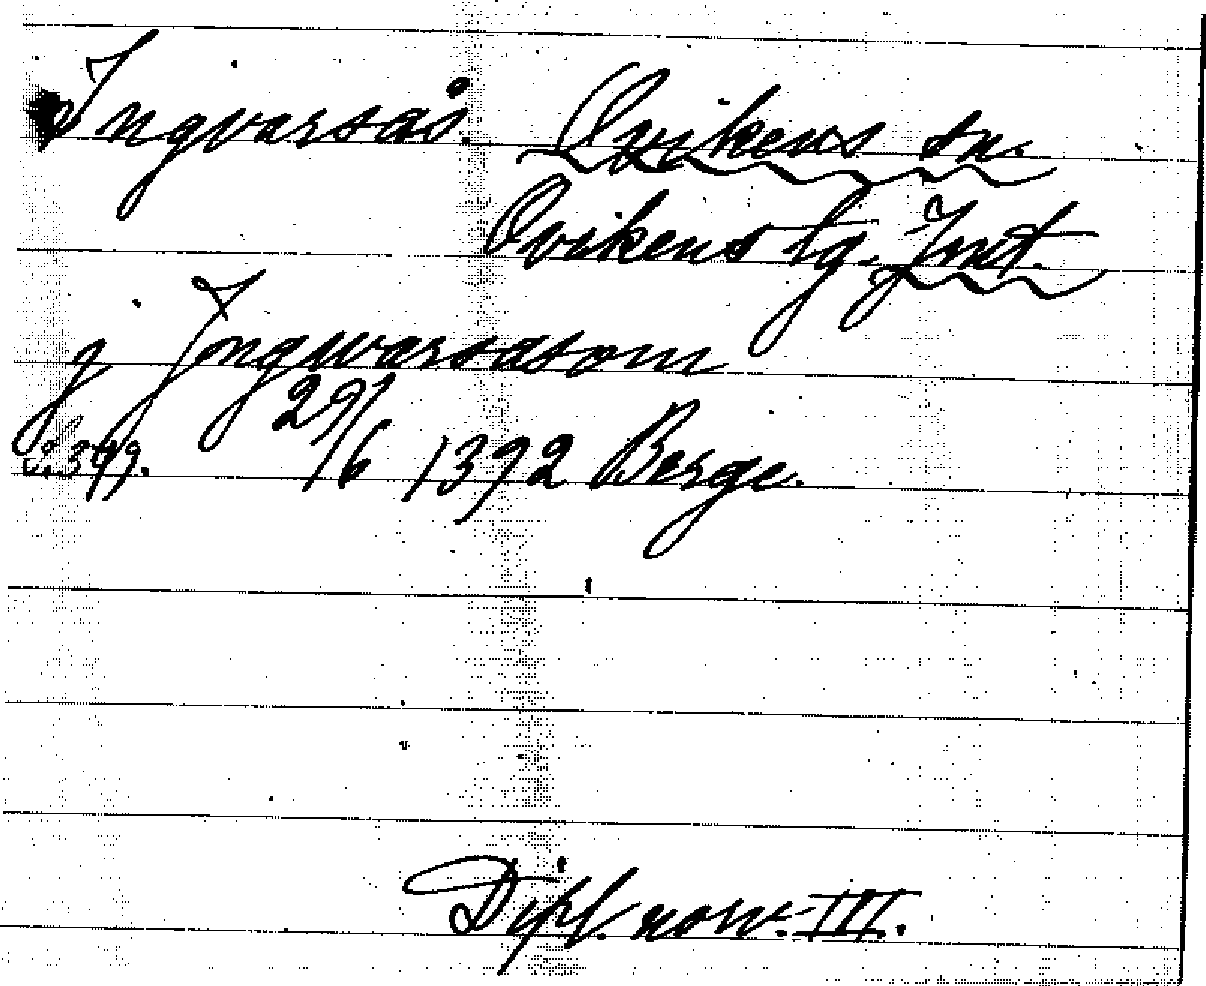 Ingvarsås. Ovikens sn.
Ovikens tg. Jmt.
j Jngwarsasom
s. 399. 29/6 1392 Berge.
Dipl. norv. III.